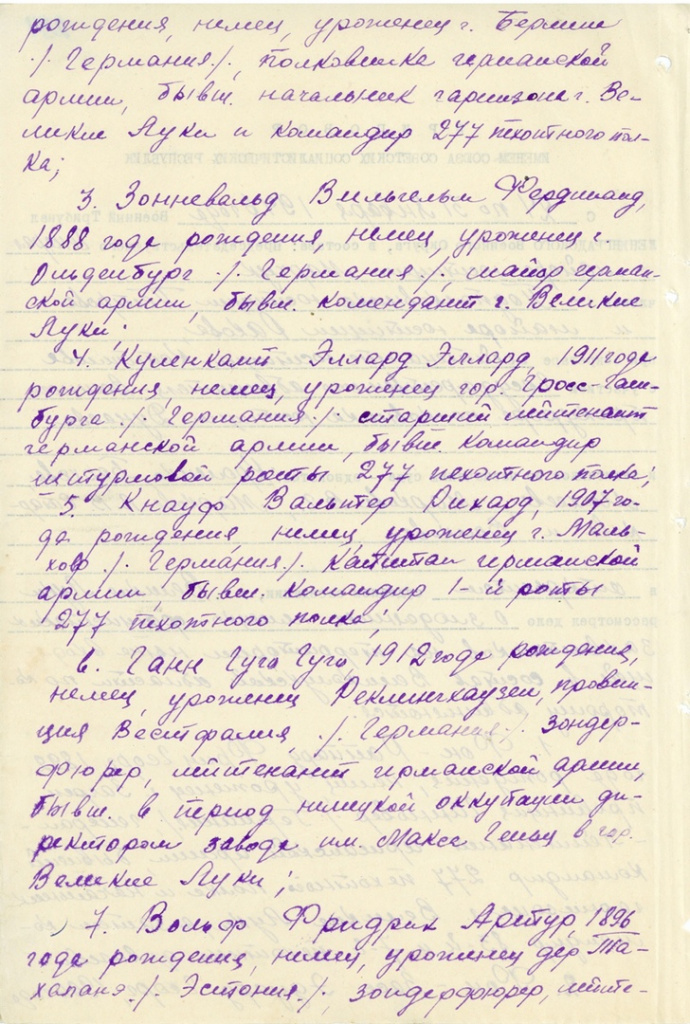 рождения, немец, уроженец г. Берлин
./. Германия ./., полковника германской
армии, бывш. начальник гарнизона г. Ве-
ликие Луки и командир 277 пехотного пол-
ка;
3. Зонневальд Вильгельм Фердинанд,
1888 года рождения, немец, уроженец г.
Ольденбург ./. Германия ./. майор герман-
ской армии, бывш. комендант г. Великие
Луки;
4. Куленкамп Эллард Эллард, 1911 года
рождения, немец, уроженец гор. Гросс-Гам-
бурга ./. Германия ./. старший лейтенант
германской армии, бывш. командир
штурмовой роты 277 пехотного полка;
5. Кнауф Вальтер Рихард, 1907 го-
да рождения, немец, уроженец г. Маль-
хов ./. Германия ./. капитан германской
армии, бывш. командир 1-й роты
277 пехотного полка;
6. Ганн Гуго Гуго, 1912 года рождения,
немец, уроженец Реклингхаузен, провин-
ция Вестфалия, ./. Германия ./. зондер-
фюрер, лейтенант германской армии,
бывш. в период немецкой оккупации ди-
ректором завода им. Макса Гельц в гор.
Великие Луки;
7. Вольф Фридрих Артур, 1896
года рождения, немец, уроженец дер. Та-
халанэ ./. Эстония ./., зондерфюрер, лейте-